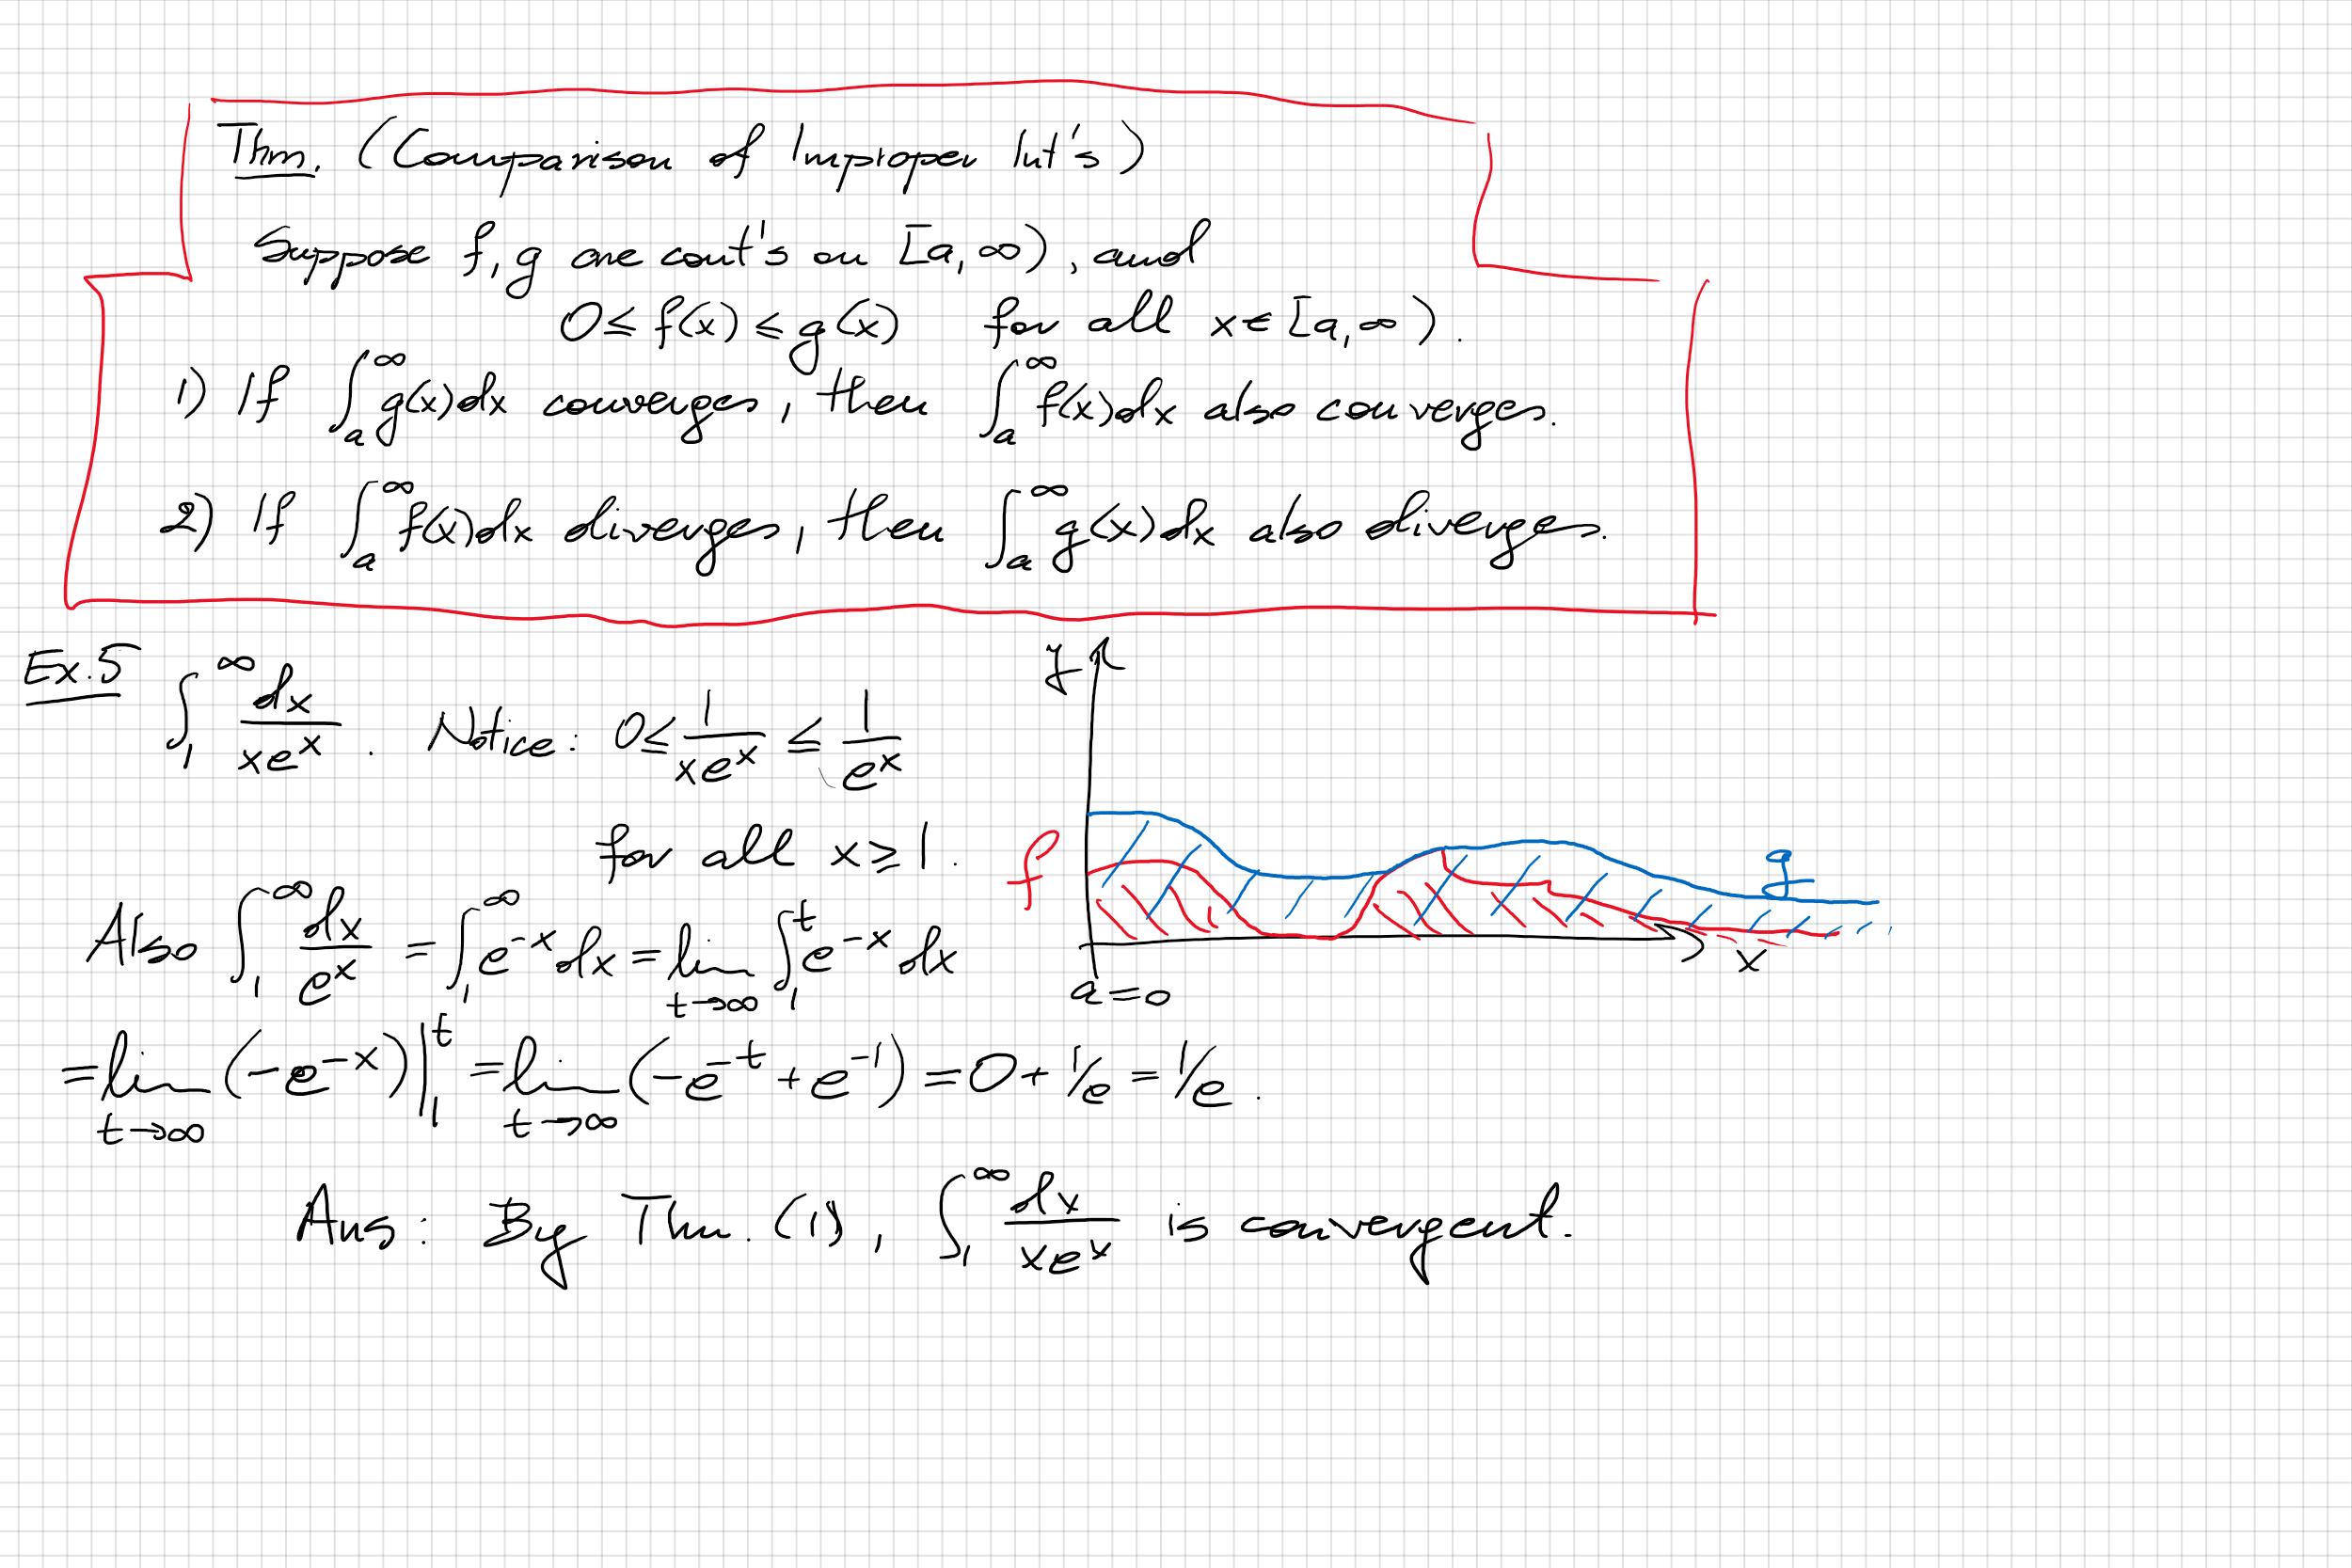 Thm. (Comparison of Improper Int's)
Suppose f, g are cont's on [a, ∞), and
0 ≤ f(x) ≤ g(x) for all x ∈ [a, ∞).
1) If ∫_a^∞ g(x)dx converges, then ∫_a^∞ f(x)dx also converges.
2) If ∫_a^∞ f(x)dx diverges, then ∫_a^∞ g(x)dx also diverges.
Ex.5 ∫_1^∞ dx/(xe^x). Notice: 0 ≤ 1/(xe^x) ≤ 1/e^x
for all x ≥ 1.
Also ∫_1^∞ dx/e^x = ∫_1^∞ e^{-x} dx = lim_{t→∞} ∫_1^t e^{-x} dx
= lim_{t→∞} (-e^{-x})|_1^t = lim_{t→∞} (-e^{-t} + e^{-1}) = 0 + 1/e = 1/e.
Ans: By Thm. (1), ∫_1^∞ dx/(xe^x) is convergent.
y
f
g
x
a = 0